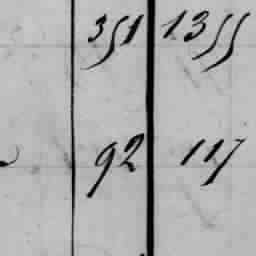 351 1355
92 117